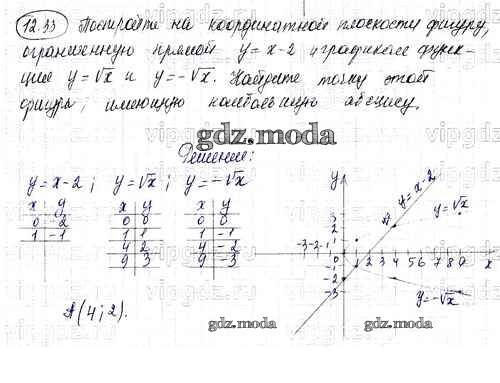 12.33 Постройте на координатной плоскости фигуру,
ограниченную прямой y = x-2 и графиками функ-
ций y = √x и y = -√x. Найдите точку этой
фигуры, имеющую наибольшую абсциссу.
gdz.moda
Решение:
y = x-2; y = √x; y = -√x
x y x y x y
0 -2 0 0 0 0
1 -1 1 1 1 -1
4 2 4 -2
9 3 9 -3
A(4; 2).
y
y = x-2
y = √x
A
3
2
1
-3 -2 -1 0 1 2 3 4 5 6 7 8 9 x
-1
-2
-3
y = -√x
gdz.moda
gdz.moda